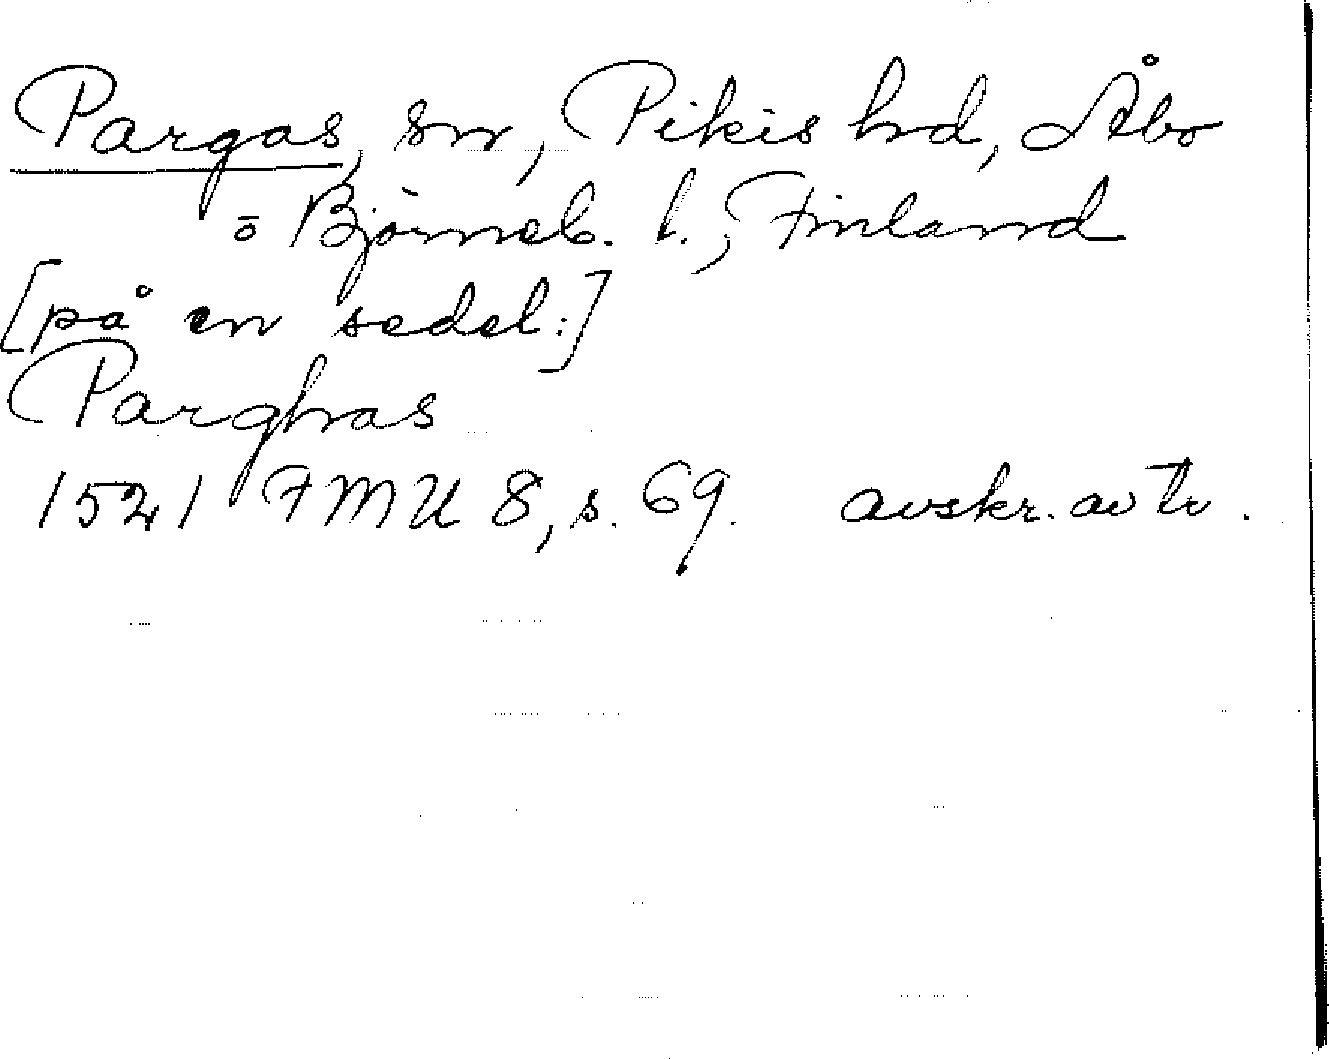 Pargas, sn, Pikis hd, Åbo
o Björneb. l., Finland
[på en sedel:]
Parghas
1521 FMU 8, s. 69. avskr. av tr.